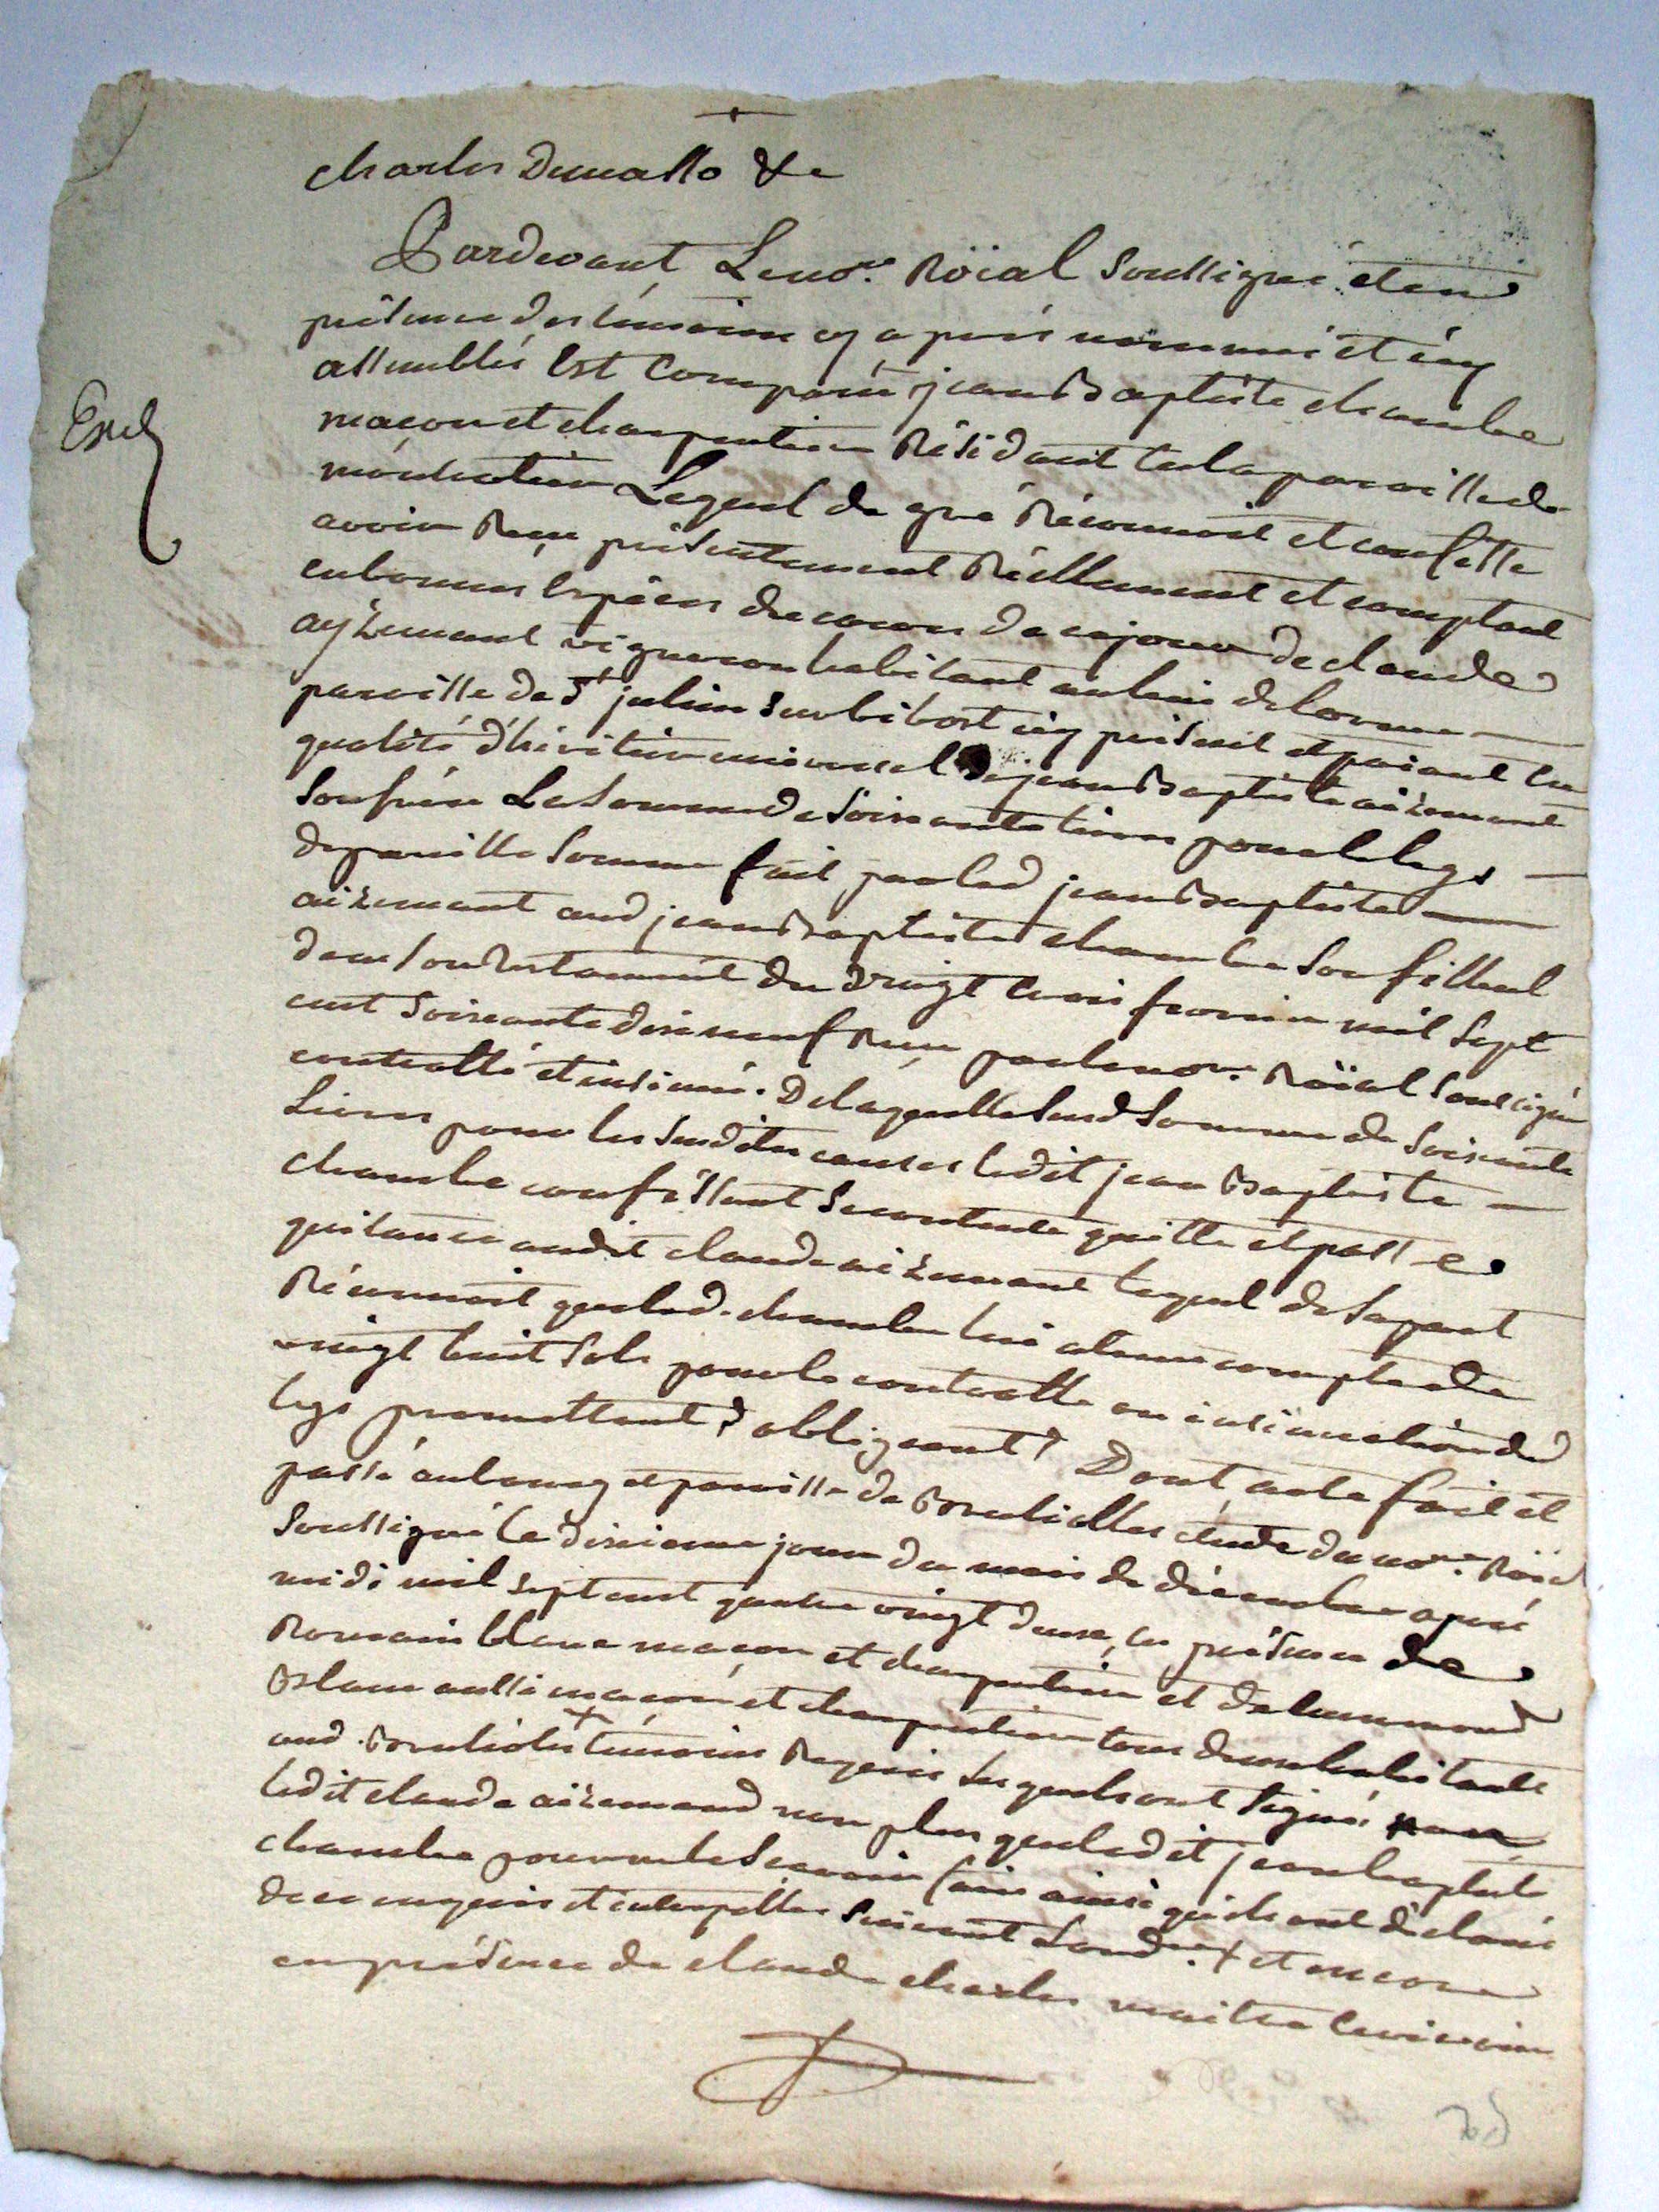 Charles Dumallo &c
Pardevant Le no.re Roïal soussigné et en
présence des temoins cy aprés nommés et icy
assemblés Est Comparu jean Baptiste chambe
maçon et charpentier Résidant en la paroisse de
Lequel de gré Réconnoit et confesse
avoir Reçu présentement Réellement et comptant
en bonnes Espèces de cours de ce jour de claude
ayzemant vigneron habitant au lieu de Lorme
paroisse de St julien sur bibost icy présent et paiant En
qualité d'héritier universel de jean Baptiste aizemant
son frère La somme de soixante livres pour le legs
de pareille somme fait par led jean Baptiste
aizemant aud jean Baptiste chambe son filleul
dans son testament du vingt trois fevrier mil sept
cent soixante dix neuf Reçu par le no.re Roïal soussigné
controllé et insinué. De laquelle susd somme de soixante
Livres pour les susdites causes ledit jean Baptiste
chambe confessant se contente quitte et passe
quitance audit claude aizemant lequel de sa part
Réconnoit que led. chambe lui a tenu compte de
vingt huit sols pour le controlle ou insinuation dud
legs promettant & obligeant & Dont acte fait et
passé au bourg et paroisse de Brulioles étude du no.re Roïal
soussigné le dixieme jour du mois de décembre aprés
midi mil sept cent quatre vingt deux, en présence de
Romain blanc maçon et charpentier et de
Blanc aussi maçon et charpentier tous deux habitants
aud. Brulioles + témoins Requis Lesquels ont signé non
ledit claude aizemand non plus que led it jean baptiste
chambe pour ne le sçavoir faire ainsi qu'ils ont déclaré
de ce enquis et interpellés suivant Lord.ce + et encore
en présence de claude charles maitre